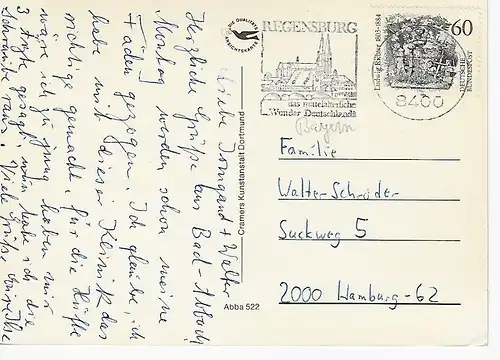 Liebe Irmgard + Walter
Herzliche Grüße aus Bad-Abbach
Montag werden schon meine
Fäden gezogen. Ich glaube, ich
habe mit dieser Klinik das
richtige gemacht, für die Hüfte
wäre ich zu jung haben mir
3 Ärzte gesagt, nun habe ich die
Schraube raus. Viele Grüße
DIE QUALITÄTS
ANSICHTSKARTE
Cramers Kunstanstalt Dortmund
Abba 522
REGENSBURG
das mittelalterliche
Wunder Deutschlands
Bayern
8400
Ludwig Richter 1803-1884
60
DEUTSCHE
BUNDESPOST
Familie
Walter Schröder
Suckweg 5
2000 Hamburg-62